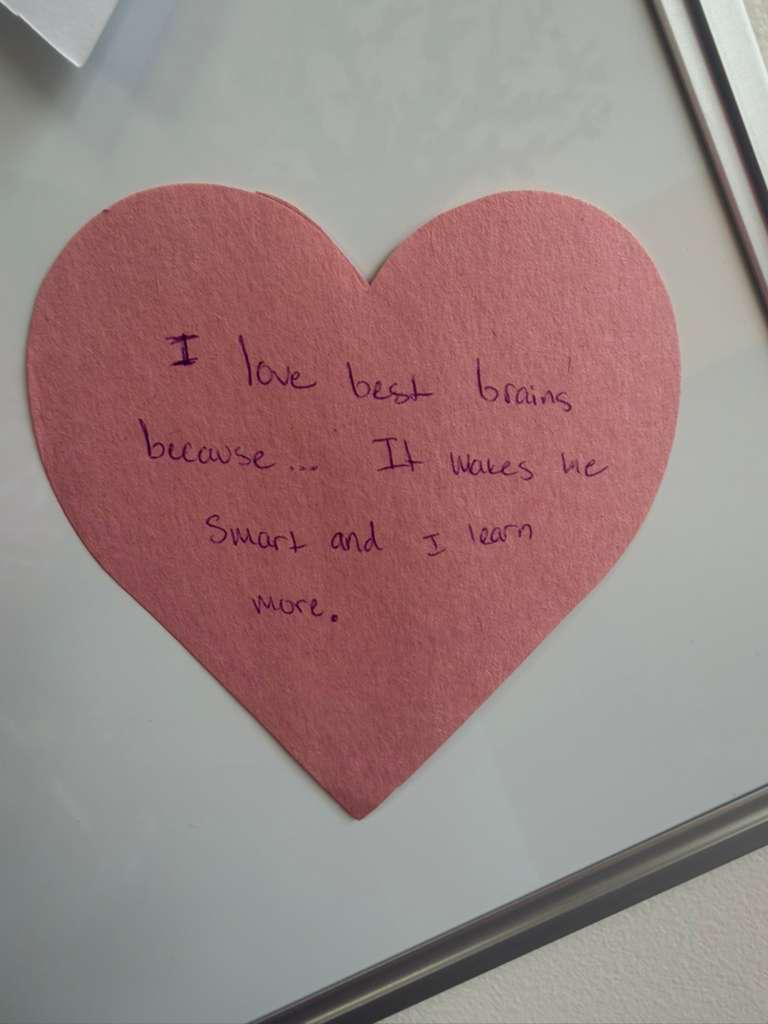 I love best brains
because... It makes me
smart and I learn
more.